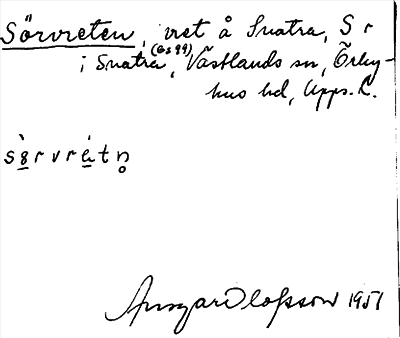 Sörvreten, vret å Snatra, S r
i Snatra (Gs 99), Västlands sn, Örby-
hus hd, Upps. L.
sè̱rvrét n̥
Ansgar Olofsson 1951